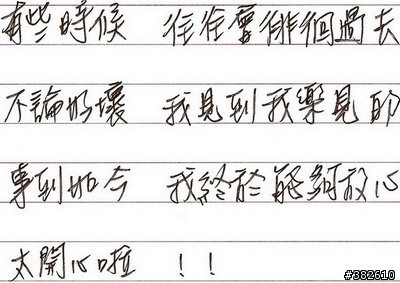 有些時候 往往會徘徊過去
不論好壞 我見到我樂見的
事到如今 我終於能夠放心
太開心啦 !!
#382610